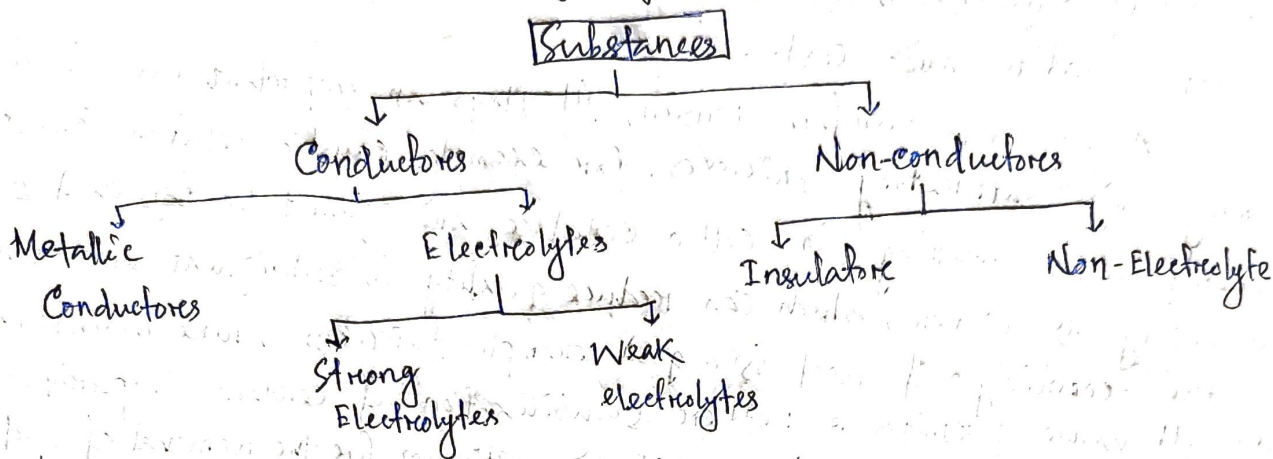 Substances
Conductors
Non-conductors
Metallic
Conductors
Electrolytes
Insulator
Non-Electrolyte
Strong
Electrolytes
Weak
electrolytes